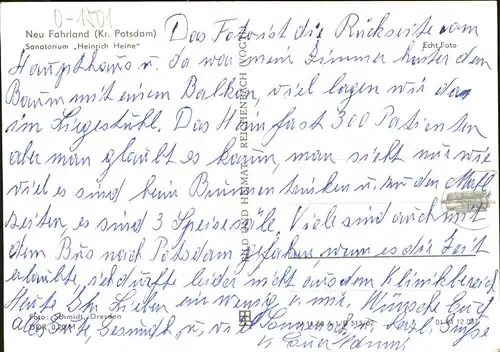 0-1501
Neu Fahrland (Kr. Potsdam)
Sanatorium „Heinrich Heine"
Echt Foto
Das Foto ist die Rückseite vom
Haupthaus u. da war mein Zimmer hinter dem
Baum mit einem Balkon, viel lagen wir da
im Liegestühl. Das Heim fast 300 Patienten
aber man glaubt es kaum, man sieht nur wie
viel es sind beim Brunnen trinken u. zu den Mahl
zeiten, es sind 3 Speisesäle. Viele sind auch mit
dem Bus nach Potsdam gefahren, wenn es die Zeit
erlaubte, ich durfte leider nicht aus dem Klinikbereich
Heute Ihr Lieben ein wenig v. mir, Wünsche Euch
alles Gute, Gesundh. u. viel Sonnenschein herzl. Grüße
BILD UND HEIMAT REICHENBACH (VOGTL)
Foto: Schmidt, Dresden